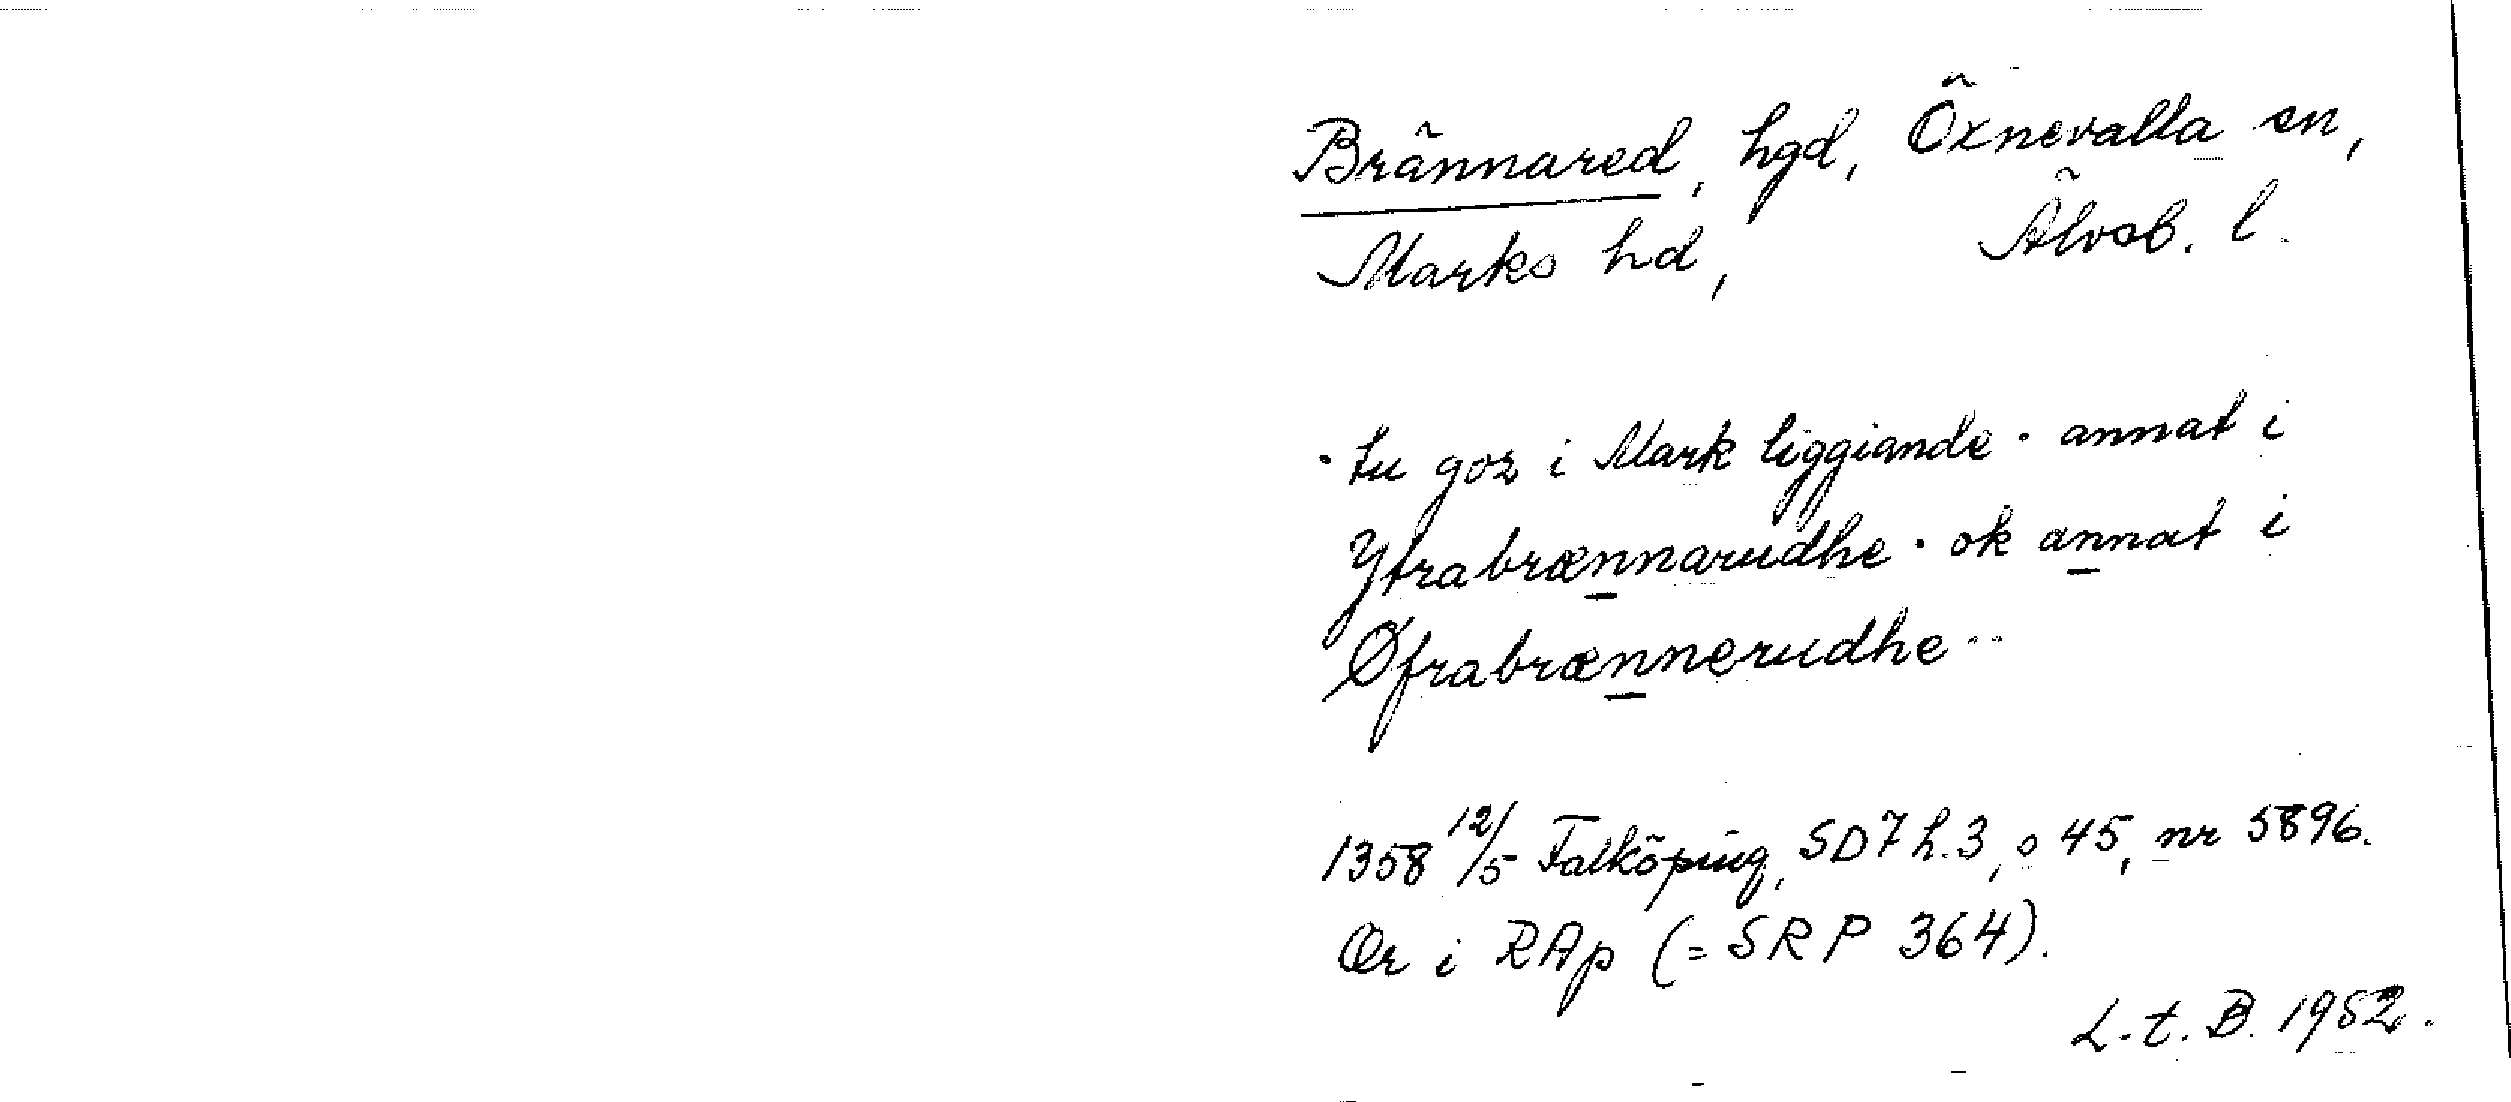 Brännared, hgd, Öxnevalla sn,
Marks hd, Älvsb. l.
· tu goz i Mark liggiande · annat i
Ytrabrænnarudhe · ok annat i
Øfrabrænnerudhe --
1358 12/5 Falköping, SD 7 h. 3, s 45, nr 5896.
Or i RAp (= SRP 364).
L. t. B. 1952.